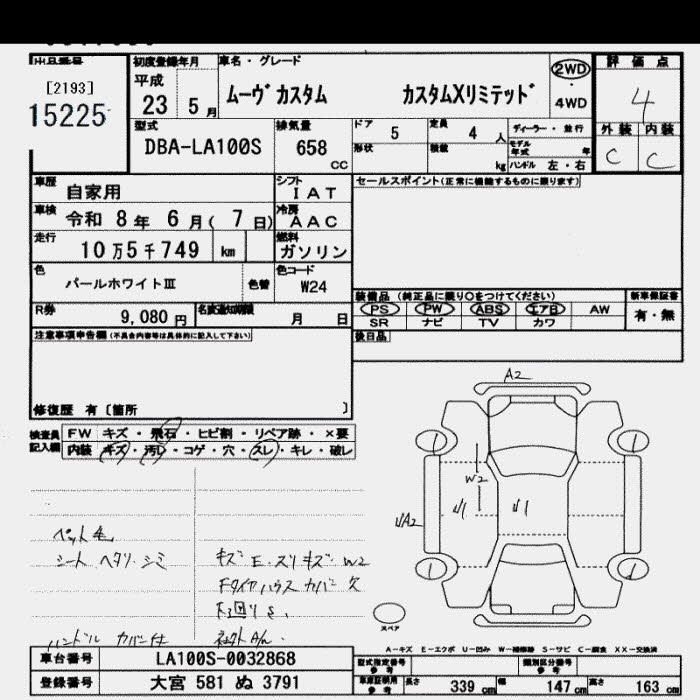 出品番号
[2193]
15225
初度登録年月
平成
23 5月
車名・グレード
ムーヴ カスタム カスタムXリミテッド
2WD
・
4WD
評価点
4
外装 内装
C C
型式
DBA-LA100S
排気量
658
cc
ドア 5
定員 4 人
ディーラー・並行
形状
積載 kg
モデル年式 年
ハンドル 左・右
車歴
自家用
シフト
IAT
セールスポイント(正常に機能するものに限ります)
車検
令和 8年 6月( 7日)
冷房
AAC
走行
10万5千749 km
燃料
ガソリン
色
パールホワイトⅢ
色替
色コード
W24
装備品 (純正品に限り○をつけてください)
新車保証書
PS PW ABS エアB AW
有・無
SR ナビ TV カワ
R券
9,080 円
名変通知期限
月 日
後日品
注意事項申告欄(不具合内容等は具体的に記入して下さい)
修復歴 有〔箇所 〕
検査員記入欄
FW キズ・飛石・ヒビ割・リペア跡・×要
内装 キズ・汚レ・コゲ・穴・スレ・キレ・破レ
A2
W2
ペット毛
シート ヘタリ・シミ
キズ E・スリキズ W2
Fタイヤハウス カバー 欠
下廻りS、
ハンドル カバー付
スペア
A−キズ E−エクボ U−凹み W−補修跡 S−サビ C−腐食 XX−交換済
車台番号
LA100S-0032868
登録番号
大宮 581 ぬ 3791
型式指定番号
参考
類別区分番号
参考
車庫証明用
参考
長さ 339 cm
幅 147 cm
高さ 163 cm